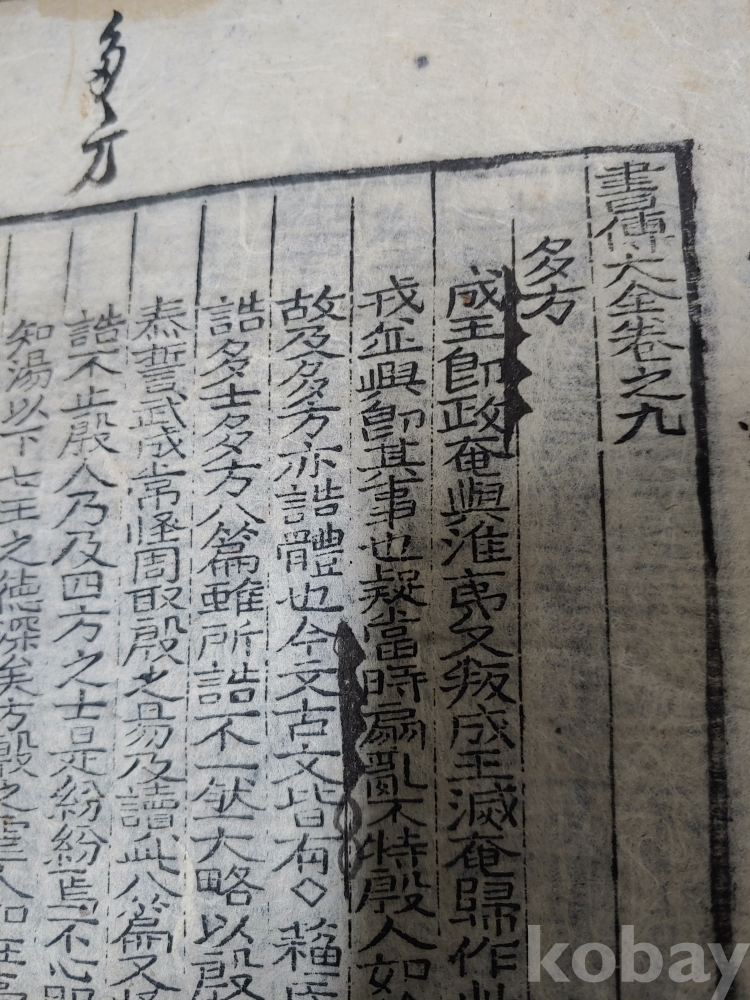 書傳大全卷之九
多方
成王卽政奄與淮夷又叛成王滅奄歸作此
戎並興卽其事也疑當時扇亂不特殷人如
故及多方亦誥體也今文古文皆有◇蘇氏
誥多士多方八篇雖所誥不一然大略以殷
泰誓武成常怪周取殷之易及讀此八篇又怪
誥不止殷人乃及四方之士是紛紛焉不心服
知湯以下七王之德深矣方殷之虐人如在
多方
kobay